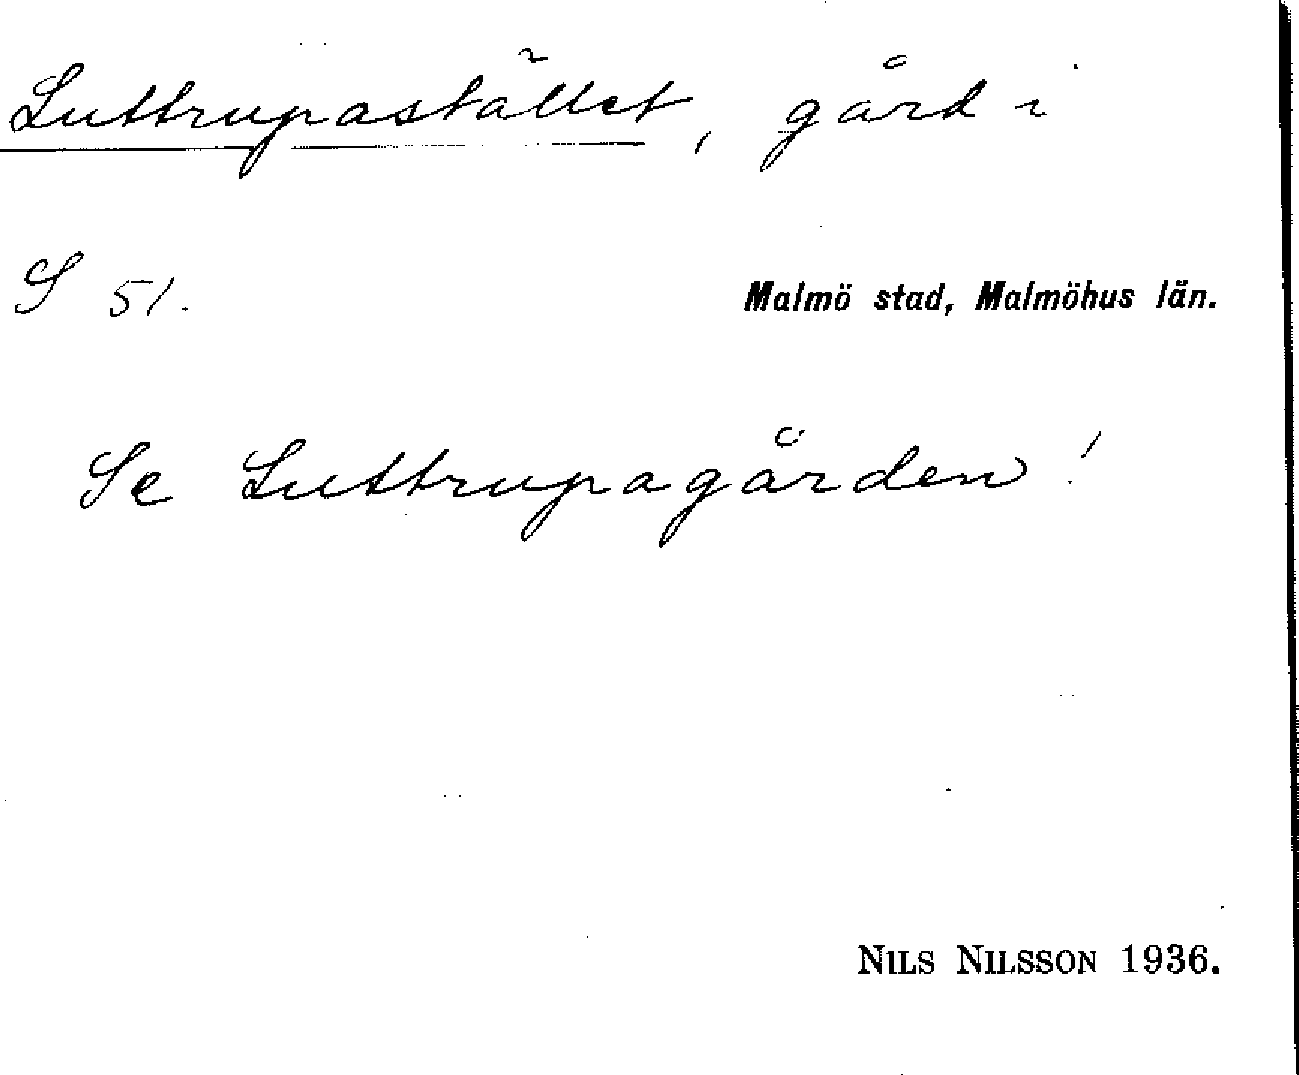 Luttrupastället, gård i
S 51.
Malmö stad, Malmöhus län.
Se Luttrupagården!
NILS NILSSON 1936.